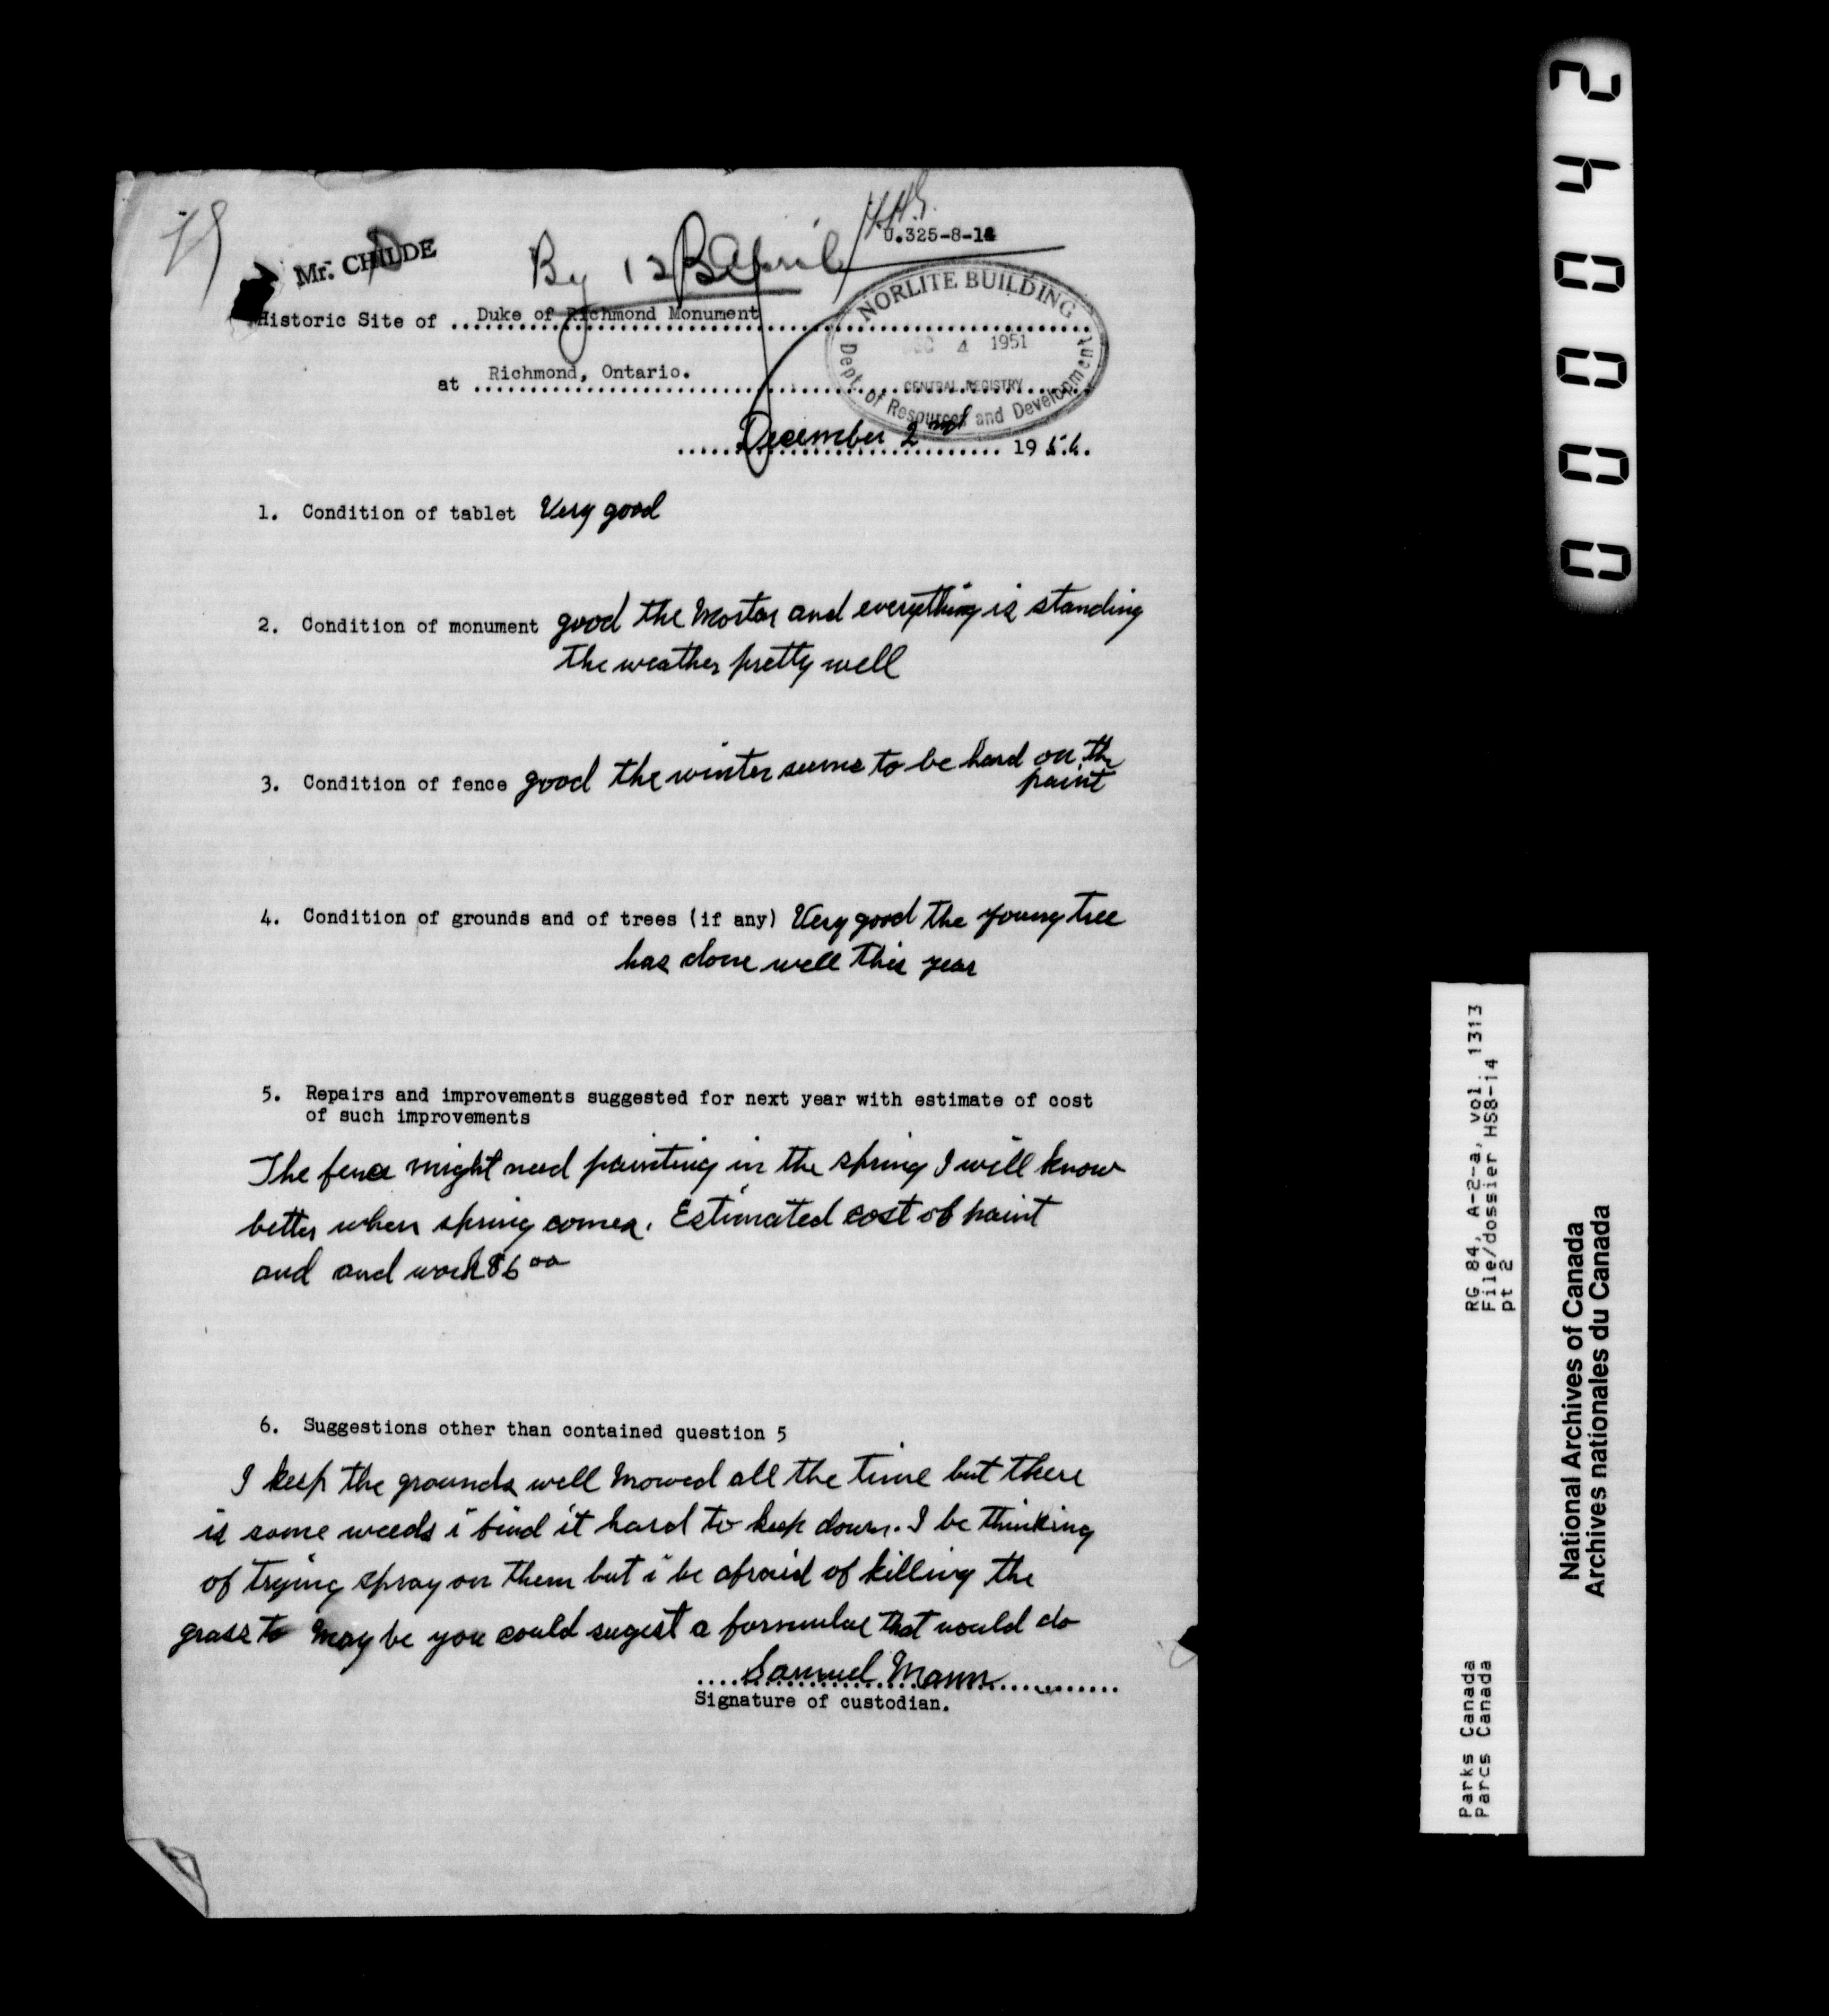 Mr. CHILDE
By 12 April
U.325-8-14
Historic Site of ..Duke of Richmond Monument
at Richmond, Ontario.
NORLITE BUILDING
DEC 4 1951
CENTRAL REGISTRY
Dept. of Resources and Development
December 2nd 19
1. Condition of tablet Very good
2. Condition of monument good the Mortar and everything is standing
the weather pretty well
3. Condition of fence good the winter seems to be hard on the
paint
4. Condition of grounds and of trees (if any) Very good the young tree
has done well this year
5. Repairs and improvements suggested for next year with estimate of cost
of such improvements
The fence might need painting in the spring I will know
better when spring comes. Estimated cost of paint
and and work
6. Suggestions other than contained question 5
I keep the grounds well Mowed all the time but there
is some weeds i find it hard to keep down. I be thinking
of trying spray on them but i be afraid of killing the
grass to May be you could sugest a formulae that would do
Samuel Mann
Signature of custodian.
240000
RG 84, A-2-a, vol. 1313
File/dossier HS8-14
pt 2
Parks Canada
Parcs Canada
National Archives of Canada
Archives nationales du Canada